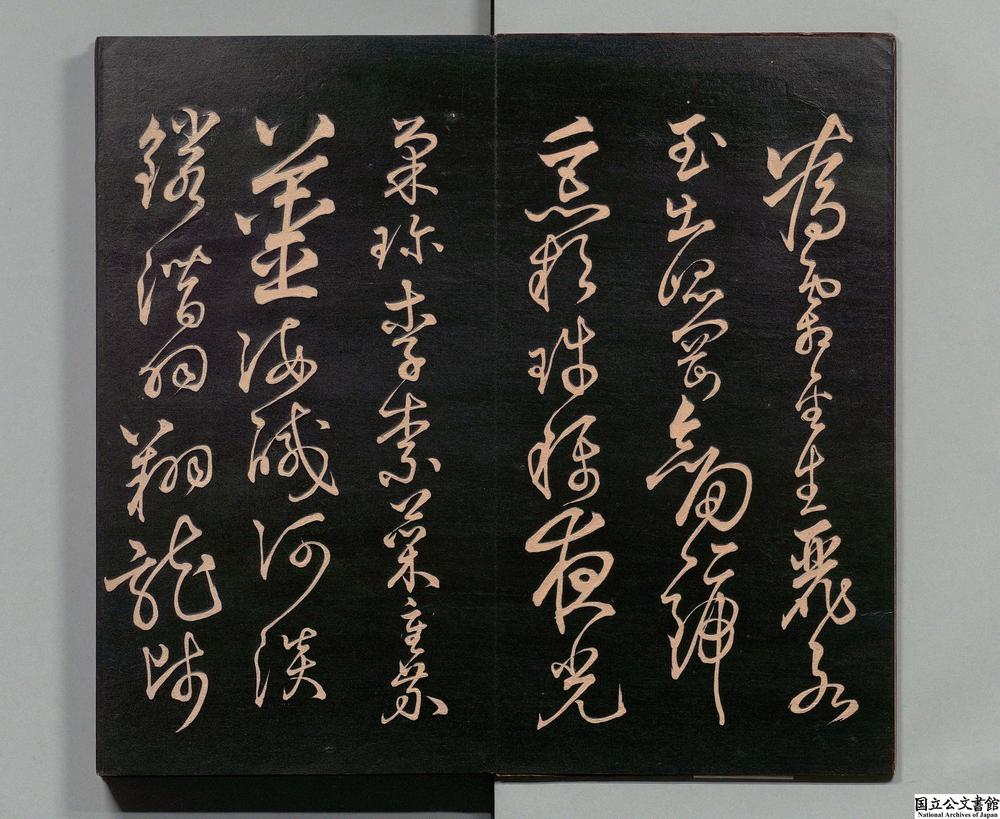 為霜金生麗水
玉出崑崗劍號
巨闕珠稱夜光
菓珍李柰菜重芥
薑海鹹河淡
鱗潛羽翔龍師
国立公文書館
National Archives of Japan